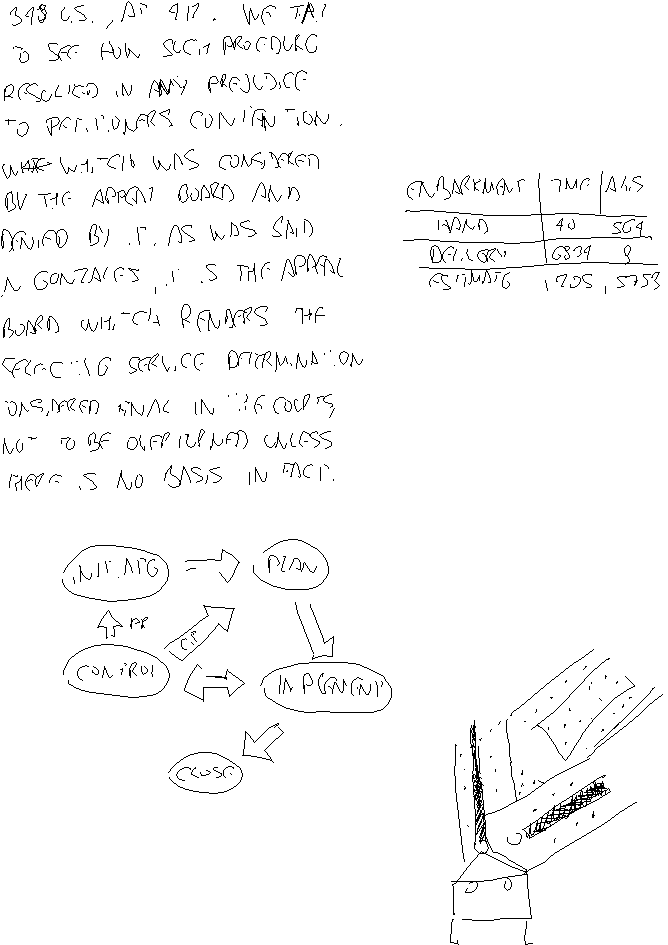 348 U.S., AT 417. WE FAIL
TO SEE HOW SUCH PROCEDURE
RESULTED IN ANY PREJUDICE
TO PETITIONERS CONTENTION.
WHICH WAS CONSIDERED
BY THE APPEAL BOARD AND
DENIED BY IT. AS WAS SAID
IN GONZALES, IT IS THE APPEAL
BOARD WHICH RENDERS THE
SELECTIVE SERVICE DETERMINATION
CONSIDERED FINAL IN THE COURTS,
NOT TO BE OVERTURNED UNLESS
THERE IS NO BASIS IN FACT.
ENBARKMENT
HAND 40 564
DELIVERY 6834 8
ESTIMATE 1705 5753
INITIATE PLAN
CONTROL IMPLEMENT
CLOSE